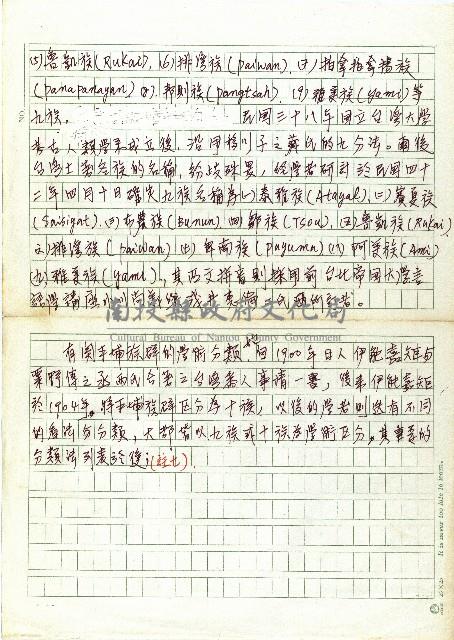 (5)魯凱族(Rukai),(6)排灣族(paiwan),(7)拍拿拍拿揚族
(panapanayan)(8).邦則族(pangtsah),(9)雅美族(yami)等
九族。 民國三十八年國立台灣大學
考古人類學系成立後,沿用移川子之藏氏的九分法。而後
台灣土著各族的名稱,紛歧殊異,經學者研討於民國四十
三年四月十日確定九族名稱為(一)泰雅族(Atayal),(二)賽夏族
(Saisiyat),(三)布農族(Bunun)(四)鄒族(Tsou),(五)魯凱族(Rukai)
(六)排灣族(paiwan)(七)卑南族(puyuma)(八)阿美族(Ami)
(九)雅美族(yami),其西文拼音則採用前台北帝國大學言
語學講座小川尚義
南投縣政府文化局
Cultural Bureau of Nantou County Government
有關平埔族群的學術分類,始自1900年日人伊能嘉矩與
粟野傳之丞兩氏合著之台灣蕃人事情一書,後來伊能嘉矩
於1904年,將平埔族群區分為十族,以後的學者則迭有不同
的看法與分類,大都皆以九族或十族為學術區分,其重要的
分類法列表於後:(註七)
NO.
It is never too late to learn.
25×20